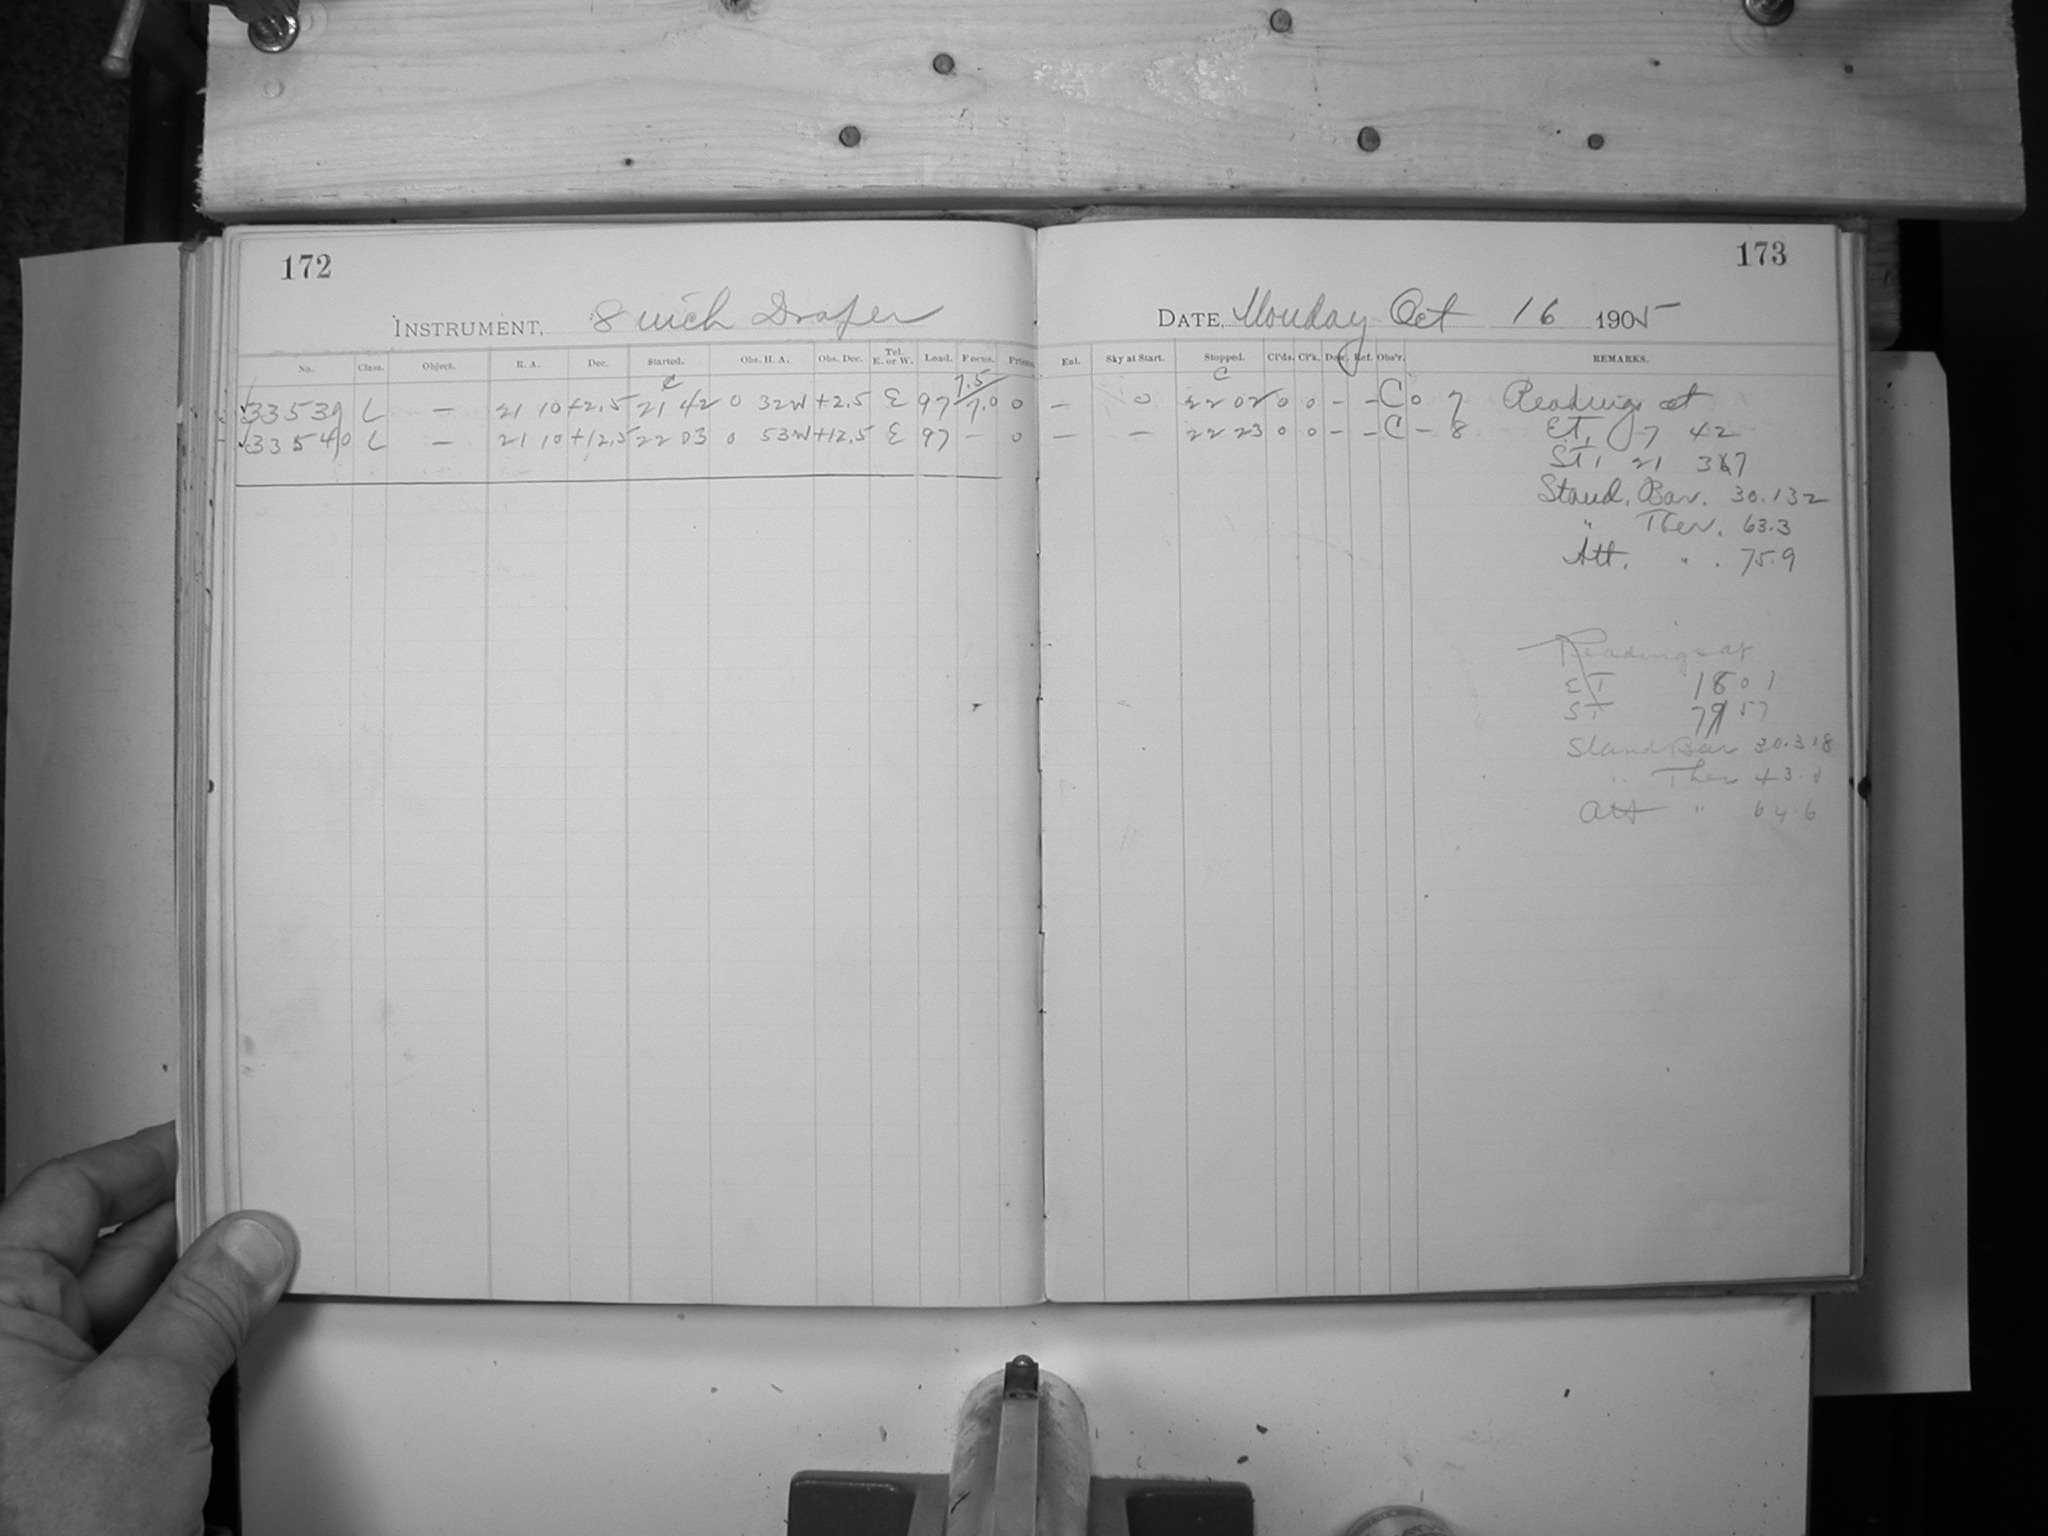 172
INSTRUMENT, 8 inch Draper
No. Class. Object. R. A. Dec. Started. Obs. H. A. Obs. Dec. Tel. E. or W. Load. Focus.
c 7.5
33539 L — 21 10 +2.5 21 42 0 32W +2.5 E 97 7.0 0
33540 L — 21 10 +12.5 22 03 0 53W +12.5 E 97 — 0
173
DATE, Monday Oct 16 1905
Enl. Sky at Start. Stopped. Cl'ds. Cl'k. Dew. Ref. Obs'r. REMARKS.
c
— 0 22 02 0 0 - - C 0 7 Readings at
— — 22 23 0 0 - - C - 8 E.T. 7 42
S.T. 21 37
Stand. Bar. 30.132
" Ther. 63.3
Att. " . 75.9
Readings at
E T 18 01
S T 7 57
Stand Bar 30.318
" Ther 43.
Att " 64.6